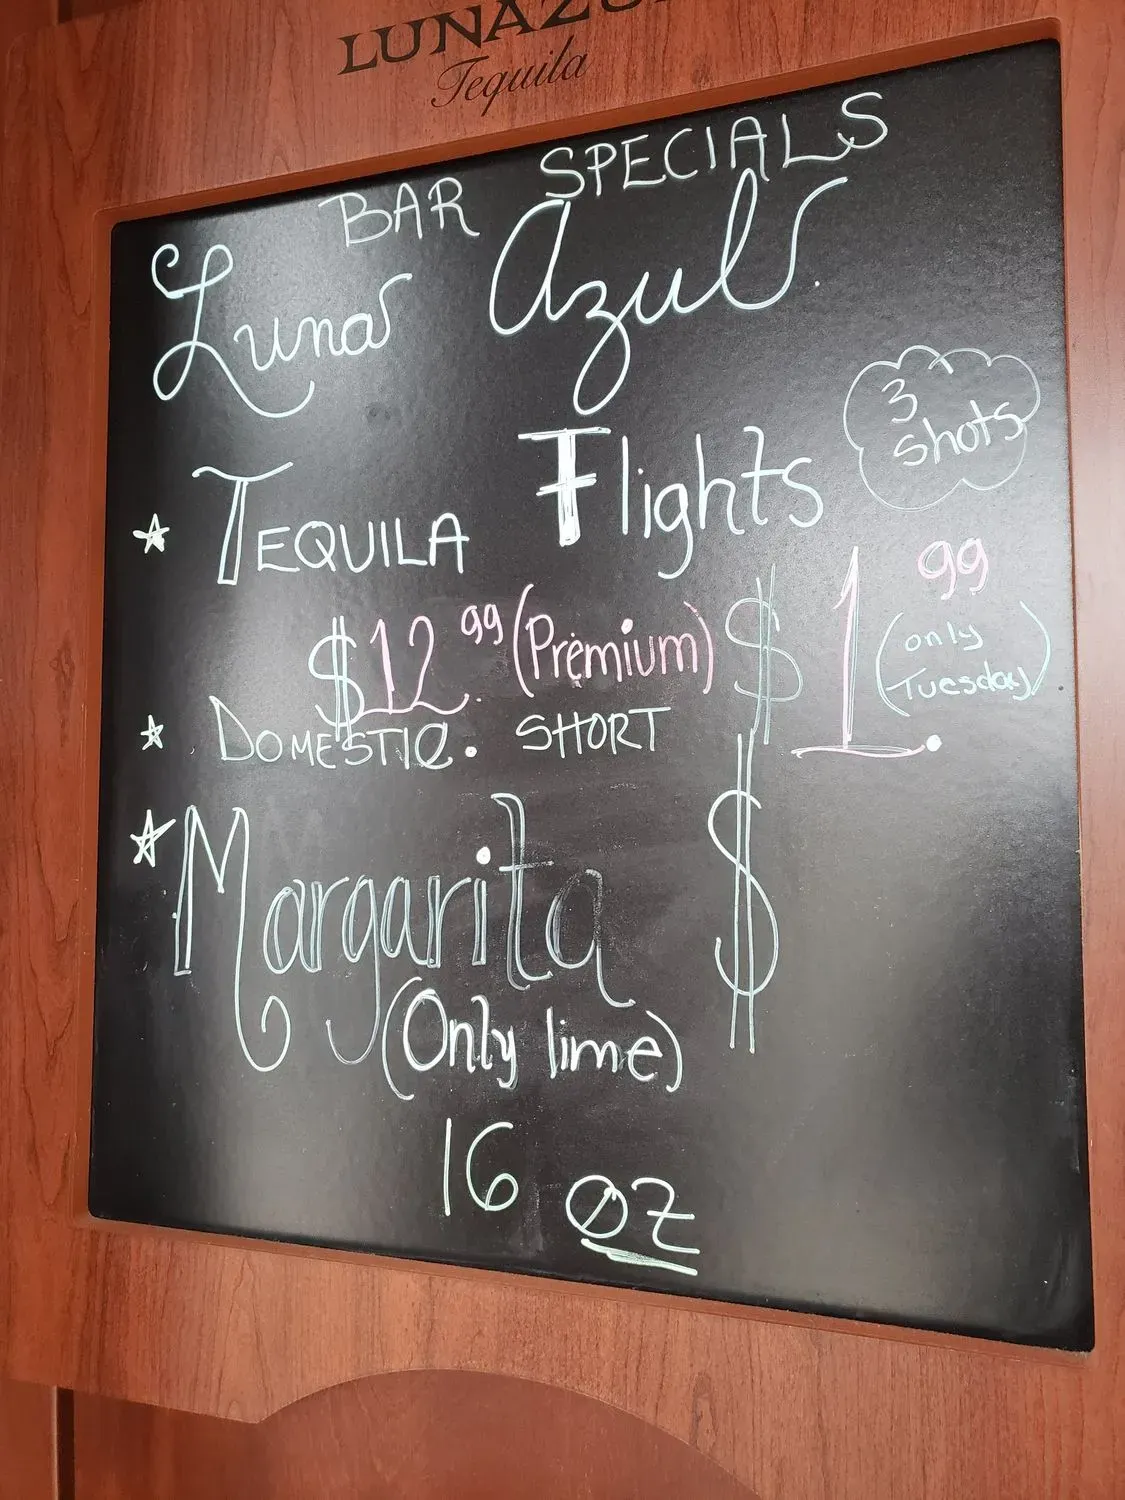 LUNAZU
Tequila
BAR SPECIALS
Luna Azul.
3
shots
TEQUILA Flights
$12.99 (Premium)
DOMESTIC. SHORT $1.99
(only
Tuesday)
Margarita $
(Only lime)
16 OZ